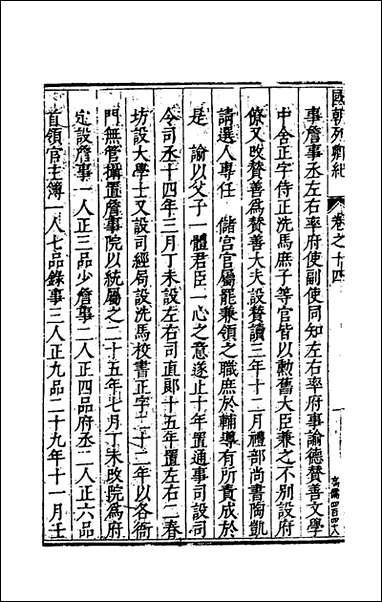 國朝列卿紀 卷之十四
事詹事丞左右率府使副使同知左右率府事諭德贊善文學
中舍正字侍正洗馬庶子等官皆以勲舊大臣兼之不別設府
僚又改贊善爲贊善大夫設賛讀三年十二月禮部尚書陶凱
請選人專任 儲宮官屬罷兼領之職庶於輔導有所責成於
是 諭以父子一體君臣一心之意遂止十年置通事司設司
令司丞十四年三月丁未設左右司直郎十五年置左右二春
坊設大學士又設司經局設洗馬校書正字二十二年以各衙
門無管攝置詹事院以統屬之二十五年七月丁未改院爲府
定設詹事一人正三品少詹事二人正四品府丞二人正六品
首領官主簿一人七品錄事三人正九品二十九年十一月壬